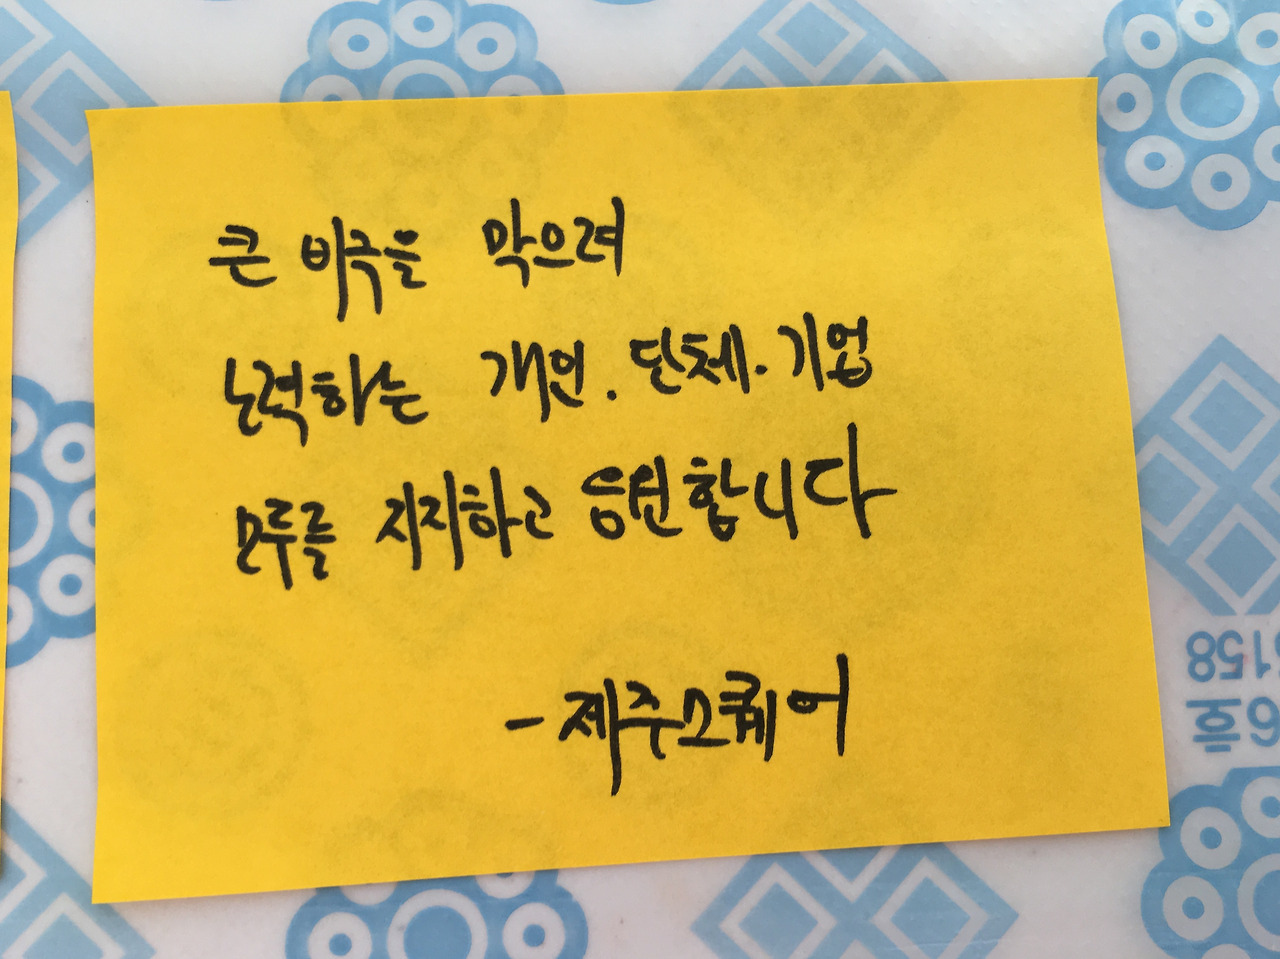 큰 비극을 막으려
노력하는 개인. 단체. 기업
모두를 지지하고 응원합니다
- 제주스퀘어
158
6호